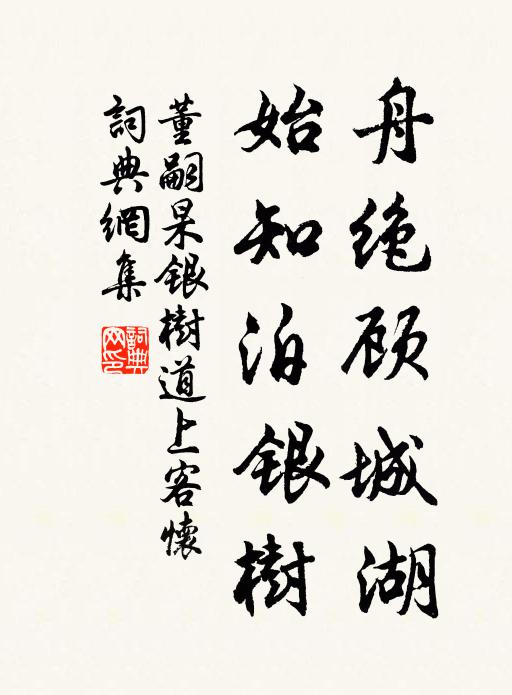 舟绝顾城湖
始知泊银樹
董嗣杲銀樹道上客懷
詞典網集
詞典網印